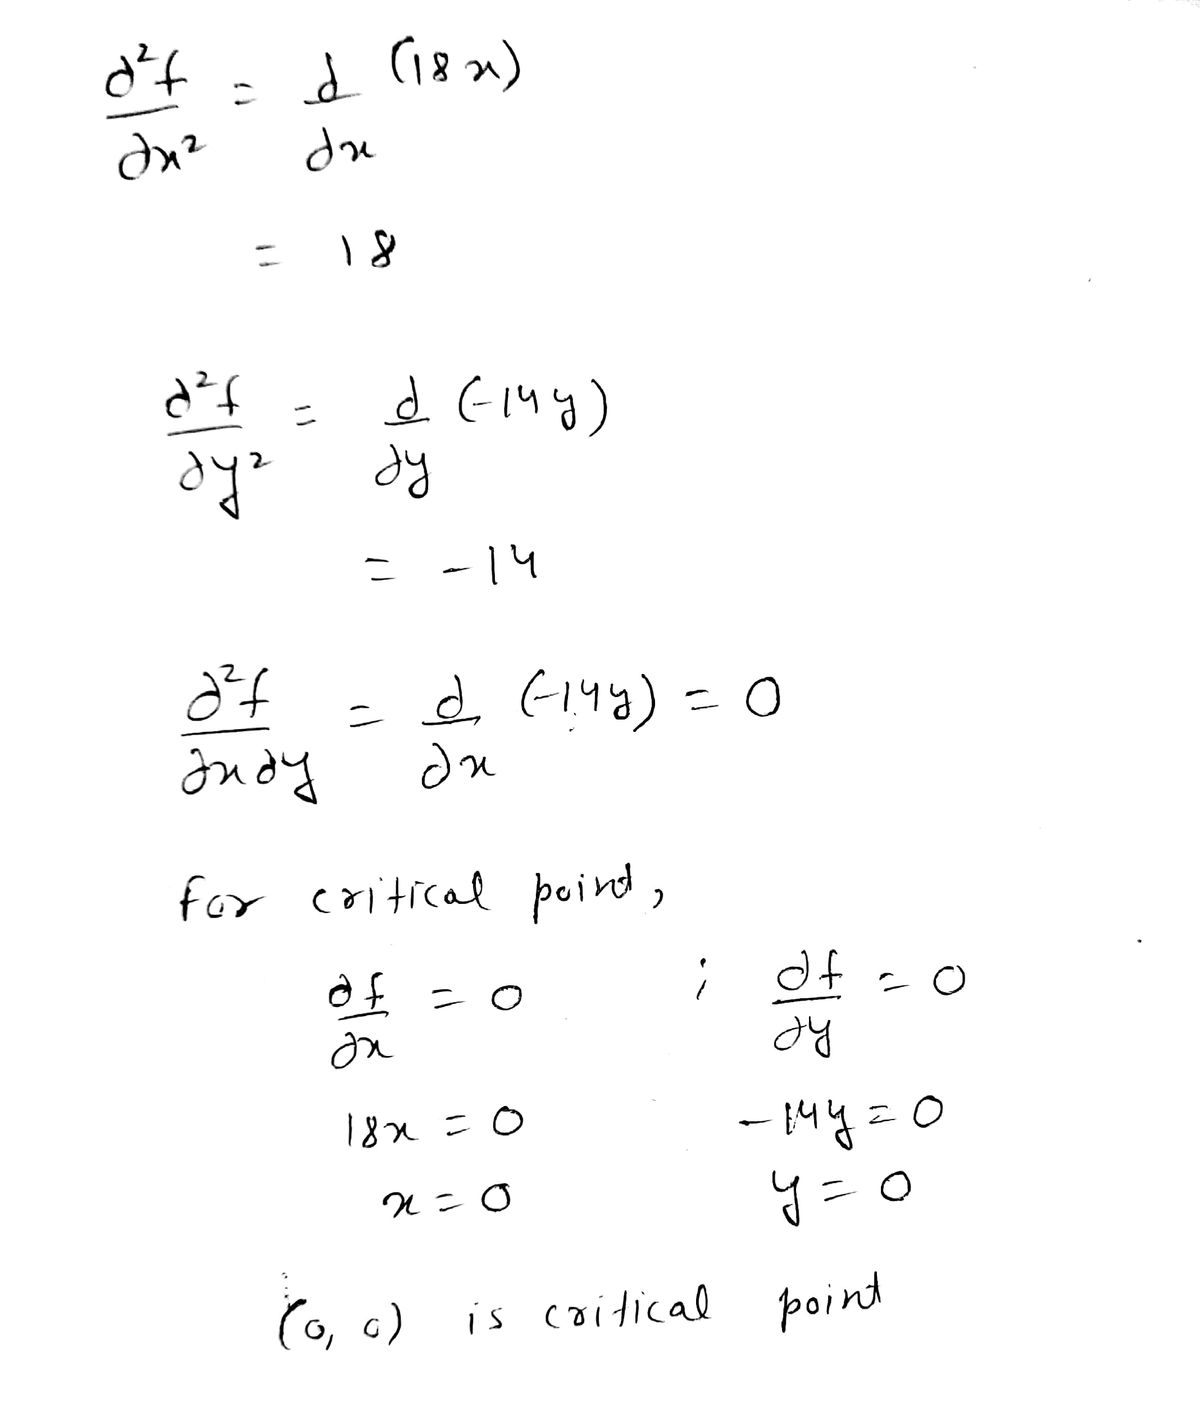 ∂²f/∂x² = d/dx (18x)
= 18
∂²f/∂y² = d/dy (-14y)
= -14
∂²f/∂x∂y = d/dx (-14y) = 0
for critical point,
∂f/∂x = 0 ; ∂f/∂y = 0
18x = 0 -14y = 0
x = 0 y = 0
(0, 0) is critical point